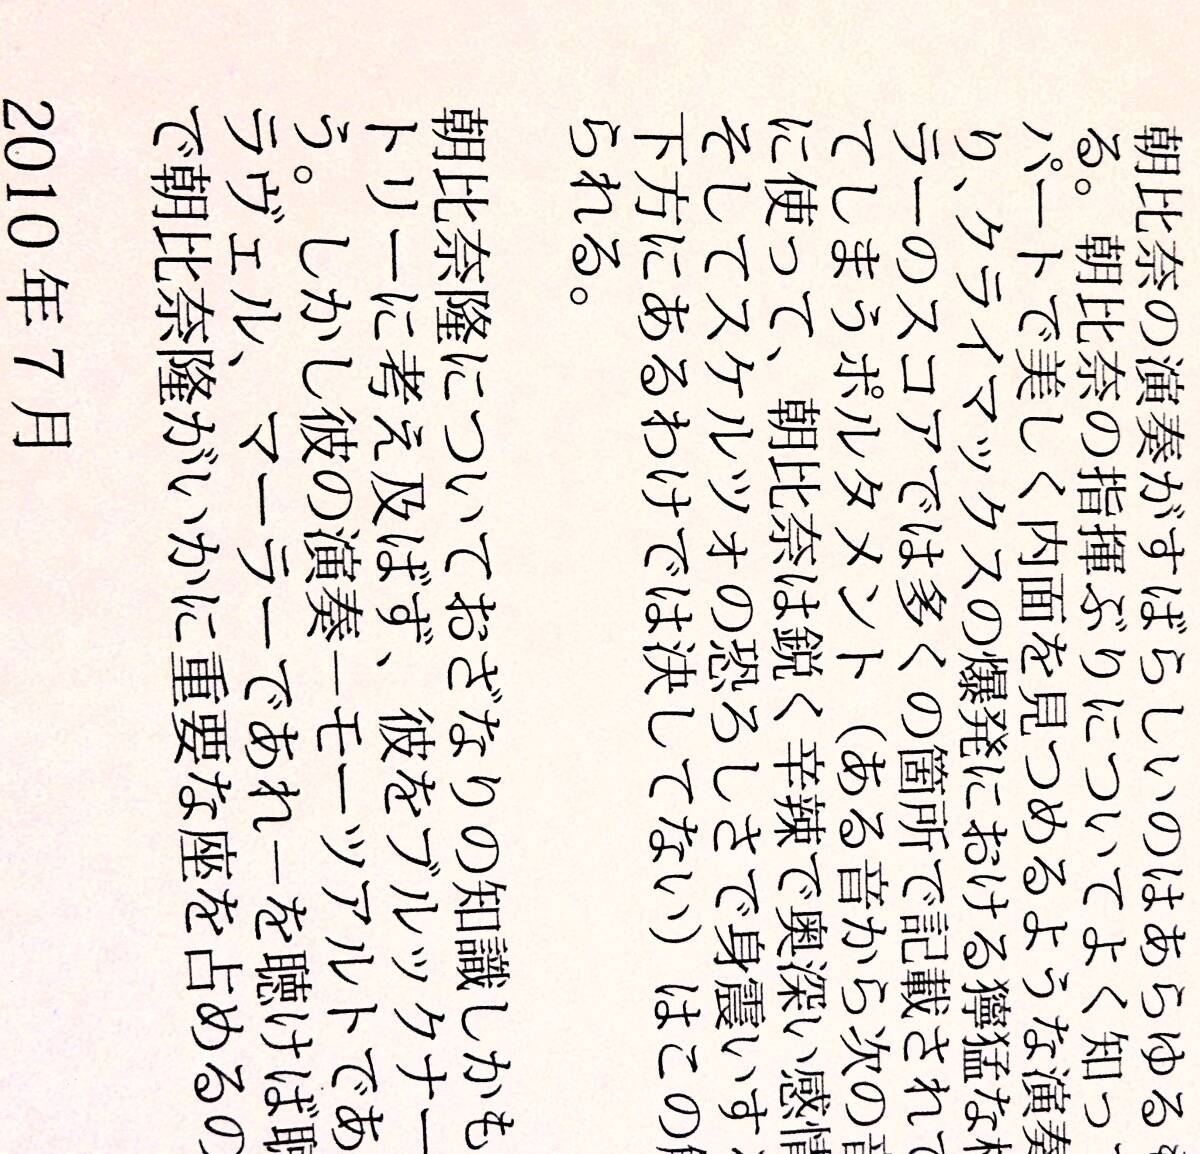 朝比奈の演奏がすばらしいのはあらゆる
る。朝比奈の指揮ぶりについてよく知っ
パートで美しく内面を見つめるような演奏
り、クライマックスの爆発における獰猛な
ラーのスコアでは多くの箇所で記載されて
てしまうポルタメント（ある音から次の音
に使って、朝比奈は鋭く辛辣で奥深い感情
そしてスケルツォの恐ろしさで身震いす
下方にあるわけでは決してない）はこの
られる。
朝比奈隆についておざなりの知識しかも
トリーに考え及ばず、彼をブルックナー
う。しかし彼の演奏－モーツアルトであ
ラヴェル、マーラーであれ－を聴けば
で朝比奈隆がいかに重要な座を占めるの
2010年7月